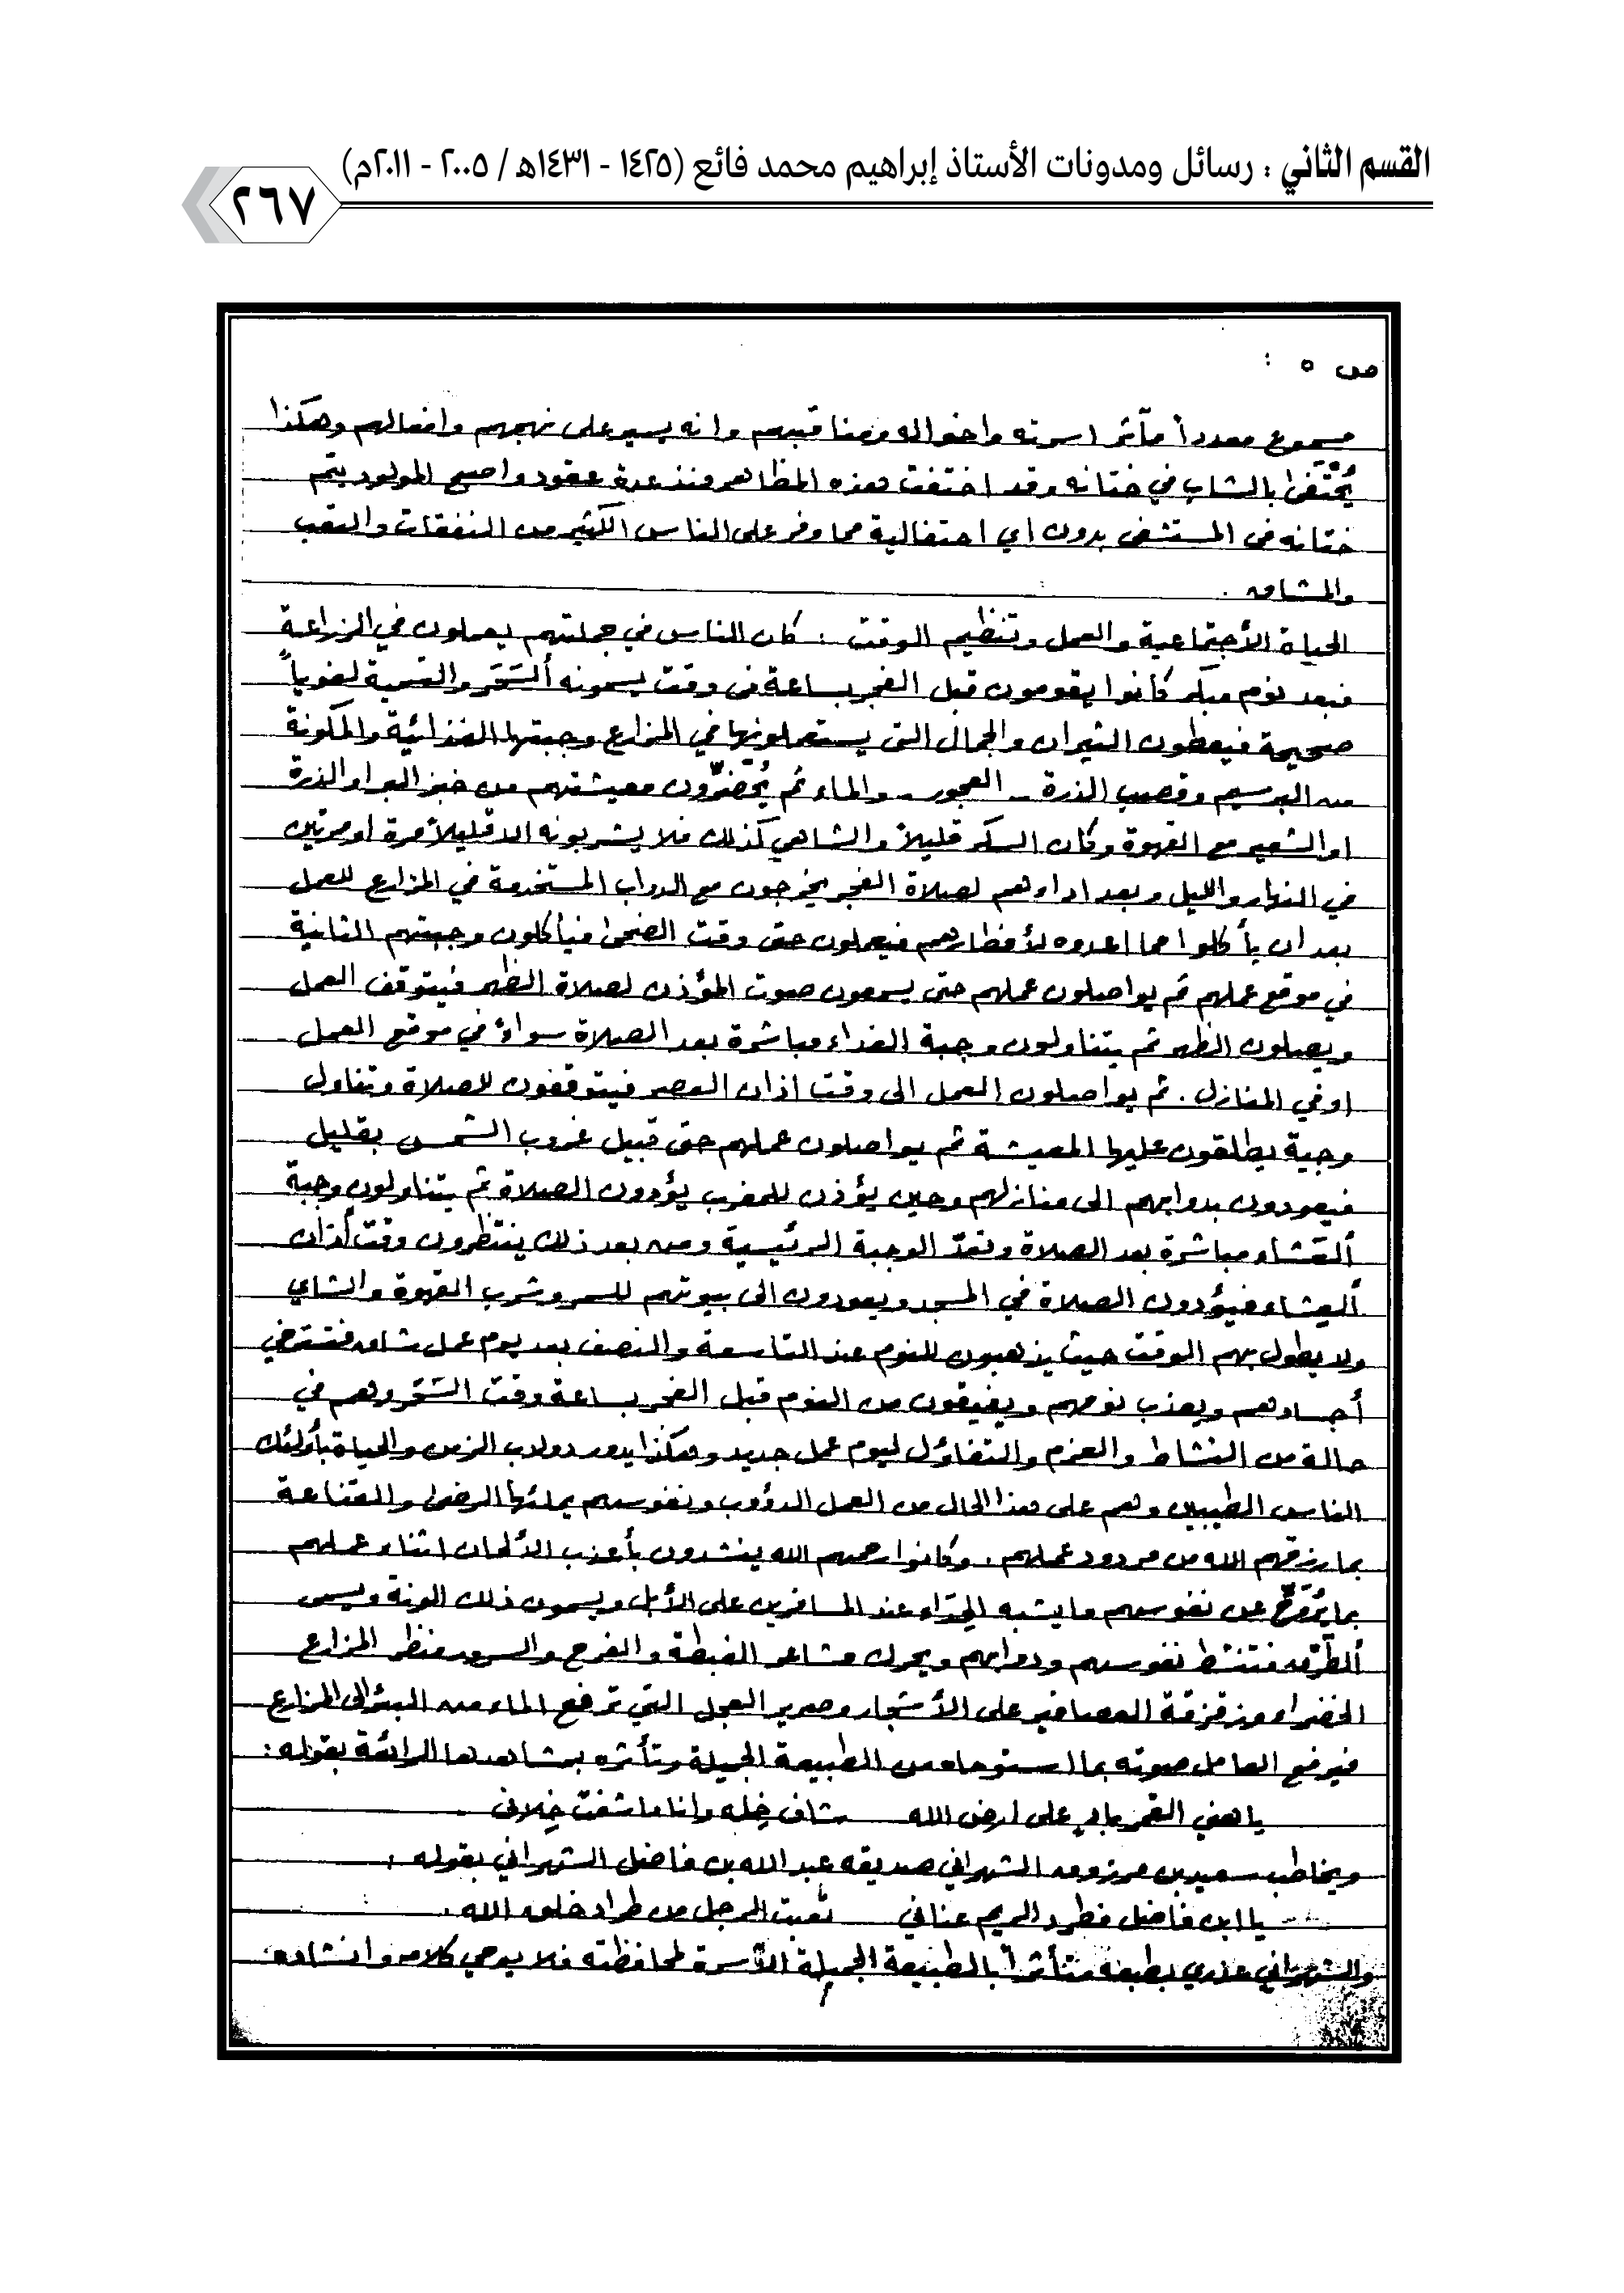 القسم الثاني : رسائل ومدونات الأستاذ إبراهيم محمد فائع (١٤٢٥ - ١٤٣١هـ / ٢٠٠٥ - ٢٠١١م)
٢٦٧
ص ٥ :
مسموع معدداً مآثر اسرته واخواله ومناقبهم وانه يسير على نهجهم وافعالهم وهكذا
يُحْتَفىٰ بالشاب في ختانه وقد اختفت هذه المظاهر منذ عدة عقود واصبح المولود يتم
ختانه في المستشفى بدون اي احتفالية مما وفر على الناس الكثير من النفقات والتعب
والمشاق .
الحياة الأجتماعية والعمل وتنظيم الوقت : كان الناس في جملتهم يعملون في الزراعة
فبعد نوم مبكر كانوا يقومون قبل الفجر بساعة في وقت يسمونه ألسَحَر والتسمية لغوياً
صحيحة فيعطون الثيران والجمال التي يستعملونها في المزارع وجبتها الغذائية والمكونة
من البرسيم وقصب الذرة - العجور - والماء ثم يُحَضرّون معيشتهم من خبز البر او الذرة
او الشعير مع القهوة وكان السكر قليلاً والشاهي كذلك فلا يشربونه الا قليلاً مرة او مرتين
في النهار والليل وبعد اداءهم لصلاة الفجر يخرجون مع الدواب المستخدمة في المزارع للعمل
بعد ان يأكلوا مما اعدوه لأفطارهم فيعملون حتى وقت الضحىٰ فيأكلون وجبتهم الثانية
في موقع عملهم ثم يواصلون عملهم حتى يسمعون صوت المؤذن لصلاة الظهر فيتوقف العمل
ويصلون الظهر ثم يتناولون وجبة الغداء مباشرة بعد الصلاة سواءً في موقع العمل
او في المنازل . ثم يواصلون العمل الى وقت اذان العصر فيتوقفون للصلاة وتناول
وجبة يطلقون عليها المعيشة ثم يواصلون عملهم حتى قبيل غروب الشمس بقليل
فيعودون بدوابهم الى منازلهم وحين يؤذن للمغرب يؤدون الصلاة ثم يتناولون وجبة
ألعَشاء مباشرة بعد الصلاة وتعدّ الوجبة الرئيسية ومن بعد ذلك ينتظرون وقت أذان
ألعِشاء فيؤدون الصلاة في المسجد ويعودون الى بيوتهم للسمر وشرب القهوة والشاي
ولا يطول بهم الوقت حيث يذهبون للنوم عند التاسعة والنصف بعد يوم عمل شاق فتسترخي
أجسادهم ويعذب نومهم ويفيقون من النوم قبل الفجر بساعة وقت السَحَر وهم في
حالة من النشاط والعزم والتفاؤل ليوم عمل جديد وهكذا يدور دولاب الزمن والحياة بأولئك
الناس الطيبين وهم على هذا الحال من العمل الدؤوب ونفوسهم يملئها الرضىٰ والقناعة
بما رزقهم الله من مردود عملهم . وكانوا رحمهم الله ينشدون بأعذب الألحان اثناء عملهم
بما يُرَوّحُ عن نفوسهم ما يشبه الحِدَاء عند المسافرين على الأبل ويسمون ذلك الونة ويسمى
ألطَرَق فتنشط نفوسهم ودوابهم ويحرك مشاعر الغبطة والفرح والسرور منظر المزارع
الخضراء وزقزقة العصافير على الأشجار وصرير العجل التي ترفع الماء من البئر الى المزارع
فيرفع العامل صوته بما استوحاه من الطبيعة الجميلة وتأثره بمشاهدها الرائعة بقوله :
يا هني القمر على ارض الله شاف خِله وانا ما شفت خِلاني
ويخاطب سعيد بن مرزوق الشهراني صديقه عبد الله بن فاضل الشهراني بقوله :
يا ابن فاضل فطرد الريم عناني تعبت الرجل من طراد خلق الله .
والشهراني عذري بطبعه متأثراً بالطبيعة الجميلة الآسرة لمحافظته فلا يوحي كلامه وانشاده